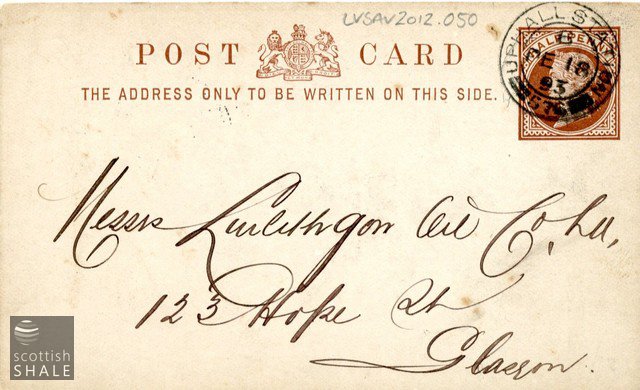 LVSAV2012.050
POST CARD
THE ADDRESS ONLY TO BE WRITTEN ON THIS SIDE.
UPHALL STATION
HALFPENNY
E 18
93
Messrs Linlithgow Oil Co. Ld,
123 Hope St
Glasgow.
scottish
SHALE